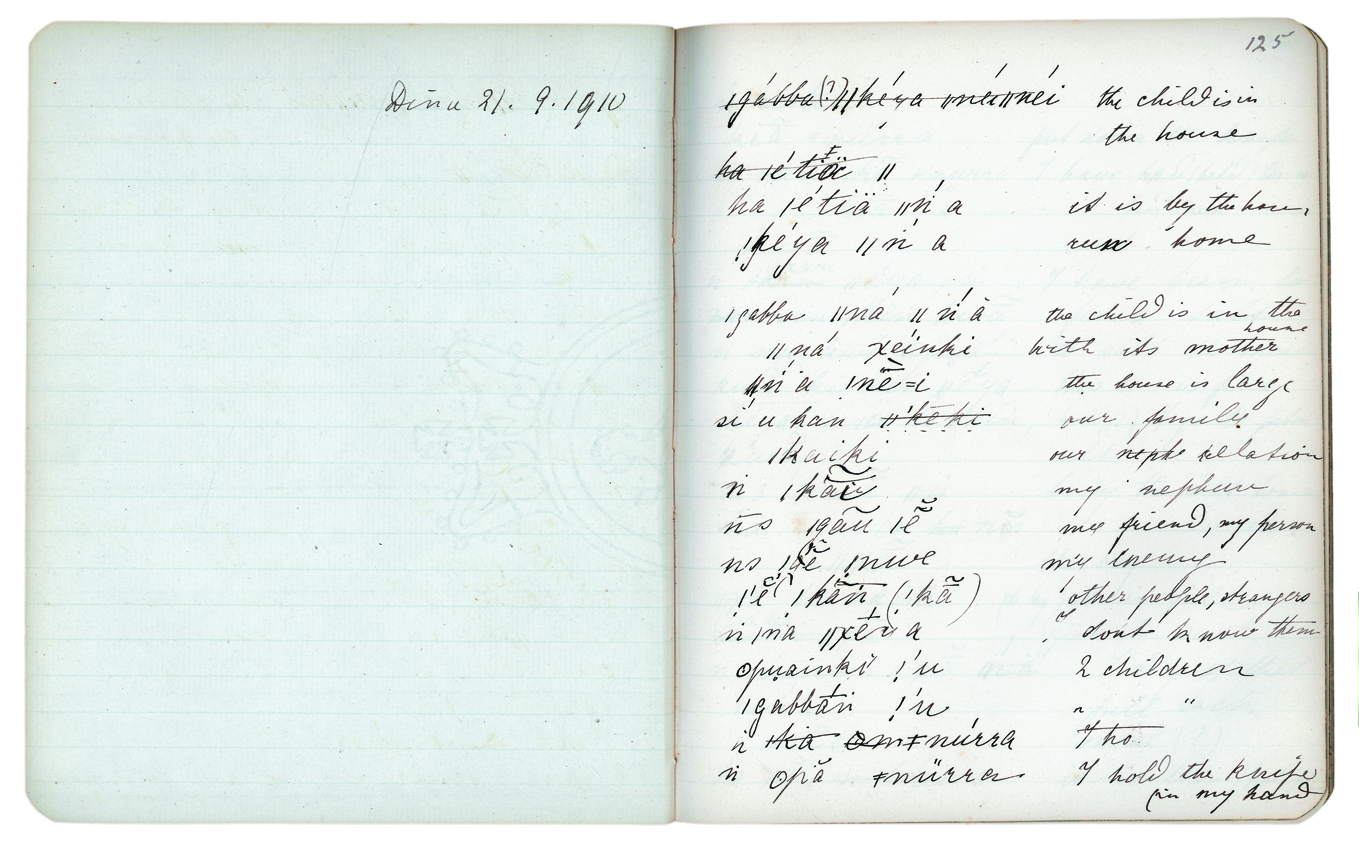 Dina 21. 9. 1910
125
ǀgábba(?) ǁkéya ǁnéi ǁnéi the child is in
the house
ha ǀétiä ǁ
ha ǀétiä ǁńa it is by the house,
ǃkéya ǁńa run home
ǀgabba ǁná ǁńa the child is in the
house
ǁná xeinki with its mother
ǁńa ǀnē=i the house is large
si u kan ǁkēki our family
ǀkaiki our neph relation
ń ǀkãũ my nephew
ńs ǀgãu ǀẽ my friend, my person
ns ǀẽ ǀnwe my enemy
ǀẽ ǀkãń (ǃkã) other people, strangers
ń ǀna ǁxēya I dont know them
ʘpuainki ǃ'u 2 children
ǀgabbań ǃ'u " "
ń ǀka ʘm ǂnúrra I ho
ń ʘpă ǂnürra I hold the knife
(in my hand